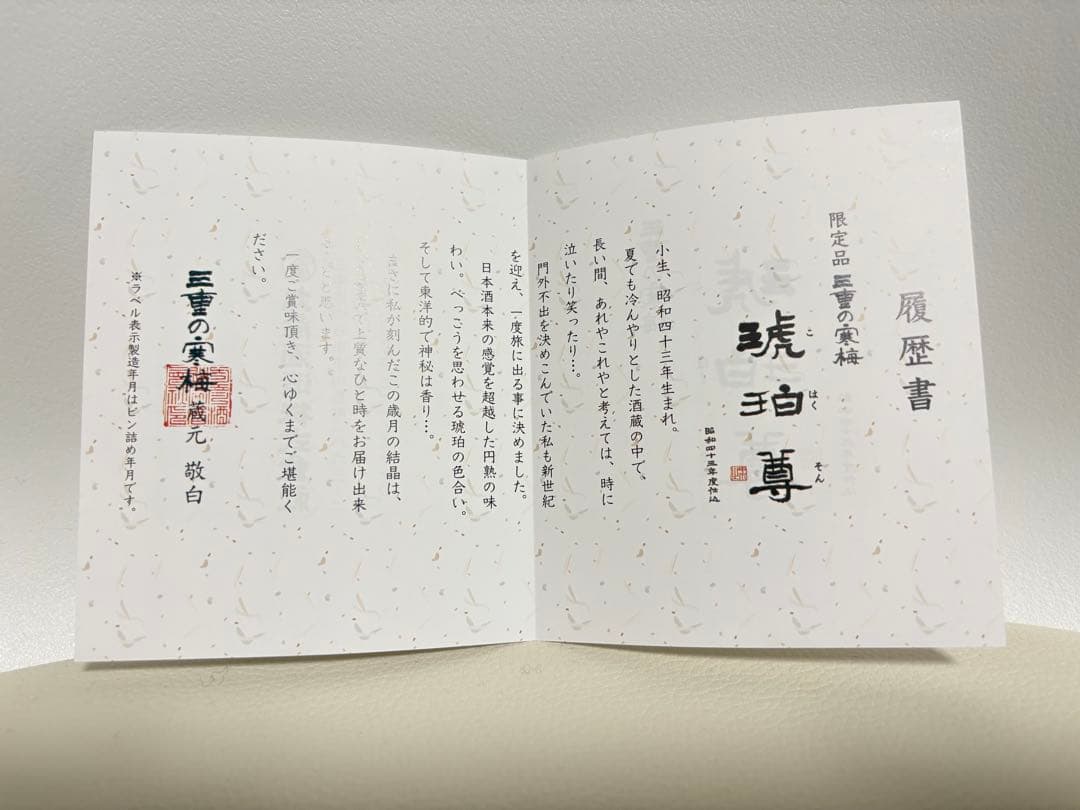 履歴書
限定品 三重の寒梅
琥珀尊
こ はく そん
昭和四十三年度仕込
小生、昭和四十三年生まれ。
夏でも冷んやりとした酒蔵の中で、
長い間、あれやこれやと考えては、時に
泣いたり笑ったり…。
門外不出を決めこんでいた私も新世紀
を迎え、一度旅に出る事に決めました。
日本酒本来の感覚を超越した円熟の味
わい。べっこうを思わせる琥珀の色合い。
そして東洋的で神秘は香り…。
まさに私が刻んだこの歳月の結晶は、
上質なひと時をお届け出来
と思います。
一度ご賞味頂き、心ゆくまでご堪能く
ださい。
三重の寒梅 蔵元 敬白
※ラベル表示製造年月はビン詰め年月です。